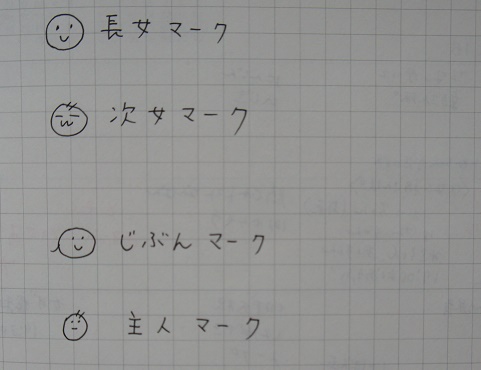 長女マーク
次女マーク
じぶんマーク
主人マーク